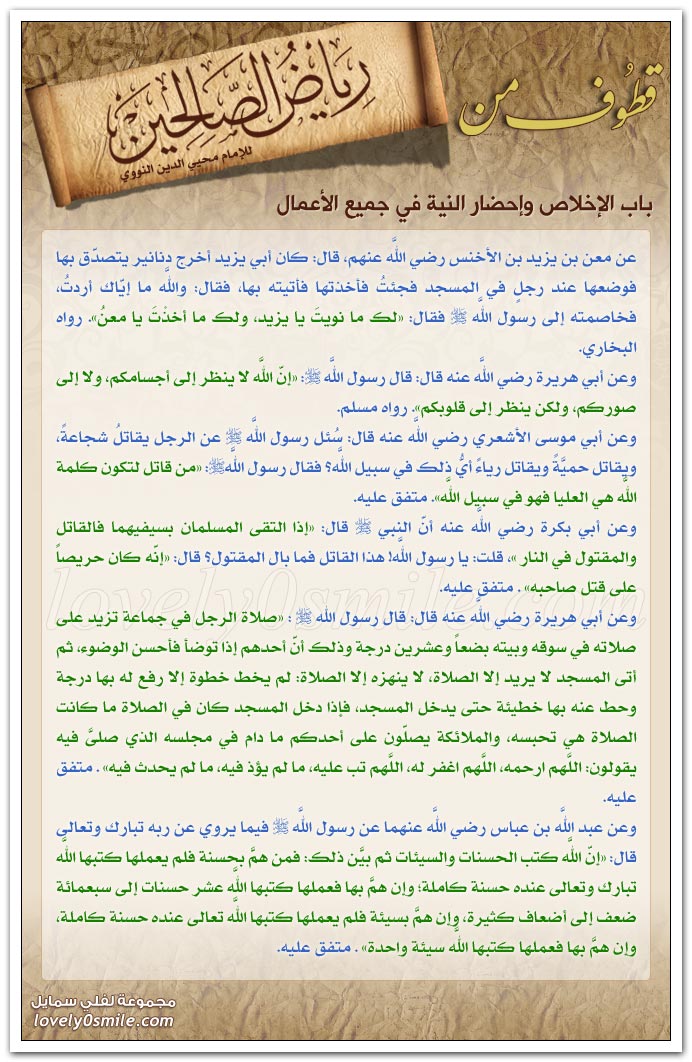 قطوف من
رياض الصالحين
للإمام محيي الدين النووي
باب الإخلاص وإحضار النية في جميع الأعمال
عن معن بن يزيد بن الأخنس رضي اللَّه عنهم، قال: كان أبي يزيد أخرج دنانير يتصدّق بها
فوضعها عند رجلٍ في المسجد فجئتُ فأخذتها فأتيته بها، فقال: واللَّه ما إيّاك أردتُ،
فخاصمته إلى رسول اللَّه ﷺ فقال: «لك ما نويتَ يا يزيد، ولك ما أخذْتَ يا معنُ». رواه
البخاري.
وعن أبي هريرة رضي اللَّه عنه قال: قال رسول اللَّه ﷺ: «إنّ اللَّه لا ينظر إلى أجسامكم، ولا إلى
صوركم، ولكن ينظر إلى قلوبكم». رواه مسلم.
وعن أبي موسى الأشعري رضي اللَّه عنه قال: سُئل رسول اللَّه ﷺ عن الرجل يقاتلُ شجاعةً،
ويقاتل حميّةً ويقاتل رياءً أيُّ ذلك في سبيل اللَّه؟ فقال رسول اللَّهﷺ: «من قاتل لتكون كلمة
اللَّه هي العليا فهو في سبيل اللَّه». متفق عليه.
وعن أبي بكرة رضي اللَّه عنه أنّ النبي ﷺ قال: «إذا التقى المسلمان بسيفيهما فالقاتل
والمقتول في النار »، قلت: يا رسول اللَّه! هذا القاتل فما بال المقتول؟ قال: «إنّه كان حريصاً
على قتل صاحبه» . متفق عليه.
وعن أبي هريرة رضي اللَّه عنه قال: قال رسول اللَّه ﷺ : «صلاة الرجل في جماعة تزيد على
صلاته في سوقه وبيته بضعاً وعشرين درجة وذلك أنّ أحدهم إذا توضأ فأحسن الوضوء، ثم
أتى المسجد لا يريد إلا الصلاة، لا ينهزه إلا الصلاة: لم يخط خطوة إلا رفع له بها درجة
وحط عنه بها خطيئة حتى يدخل المسجد، فإذا دخل المسجد كان في الصلاة ما كانت
الصلاة هي تحبسه، والملائكة يصلّون على أحدكم ما دام في مجلسه الذي صلىَّ فيه
يقولون: اللَّهم ارحمه، اللَّهم اغفر له، اللَّهم تب عليه، ما لم يؤذ فيه، ما لم يحدث فيه» . متفق
عليه.
وعن عبد اللَّه بن عباس رضي اللَّه عنهما عن رسول اللَّه ﷺ فيما يروي عن ربه تبارك وتعالى
قال: «إنّ اللَّه كتب الحسنات والسيئات ثم بيَّن ذلك: فمن همَّ بحسنة فلم يعملها كتبها اللَّه
تبارك وتعالى عنده حسنة كاملة؛ وإن همَّ بها فعملها كتبها اللَّه عشر حسنات إلى سبعمائة
ضعف إلى أضعاف كثيرة، وإن همَّ بسيئة فلم يعملها كتبها اللَّه تعالى عنده حسنة كاملة،
وإن همَّ بها فعملها كتبها اللَّه سيئة واحدة» . متفق عليه.
مجموعة لفلي سمايل
lovely0smile.com
lovely0smile.com